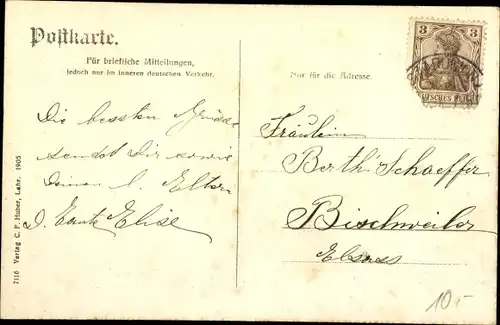 Postkarte.
Für briefliche Mitteilungen,
jedoch nur im inneren deutschen Verkehr.
Nur für die Adresse.
3 3
DEUTSCHES REICH
Die besten Grüße
sendet Dir sowie
Deinen l. Eltern
D. Tante Elise
Fräulein
Berth. Schaeffer
Bischweiler
Elsass
7116 Verlag C. F. Huber, Lahr. 1905
10.-